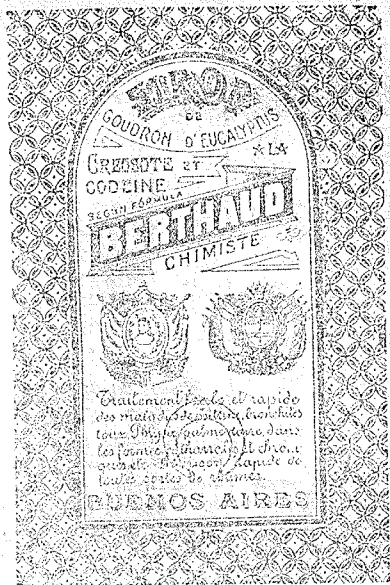 SIROP
DE
GOUDRON D'EUCALYPTUS
A LA
CREOSOTE ET
CODEINE
SEGUN FÓRMULA
BERTHAUD
CHIMISTE
Traitement facile et rapide
des maladies de poitrine, bronchites
toux, Phtysie pulmonaire, dans
les formes et chron
rapide de
toutes sortes de rhumes
BUENOS AIRES